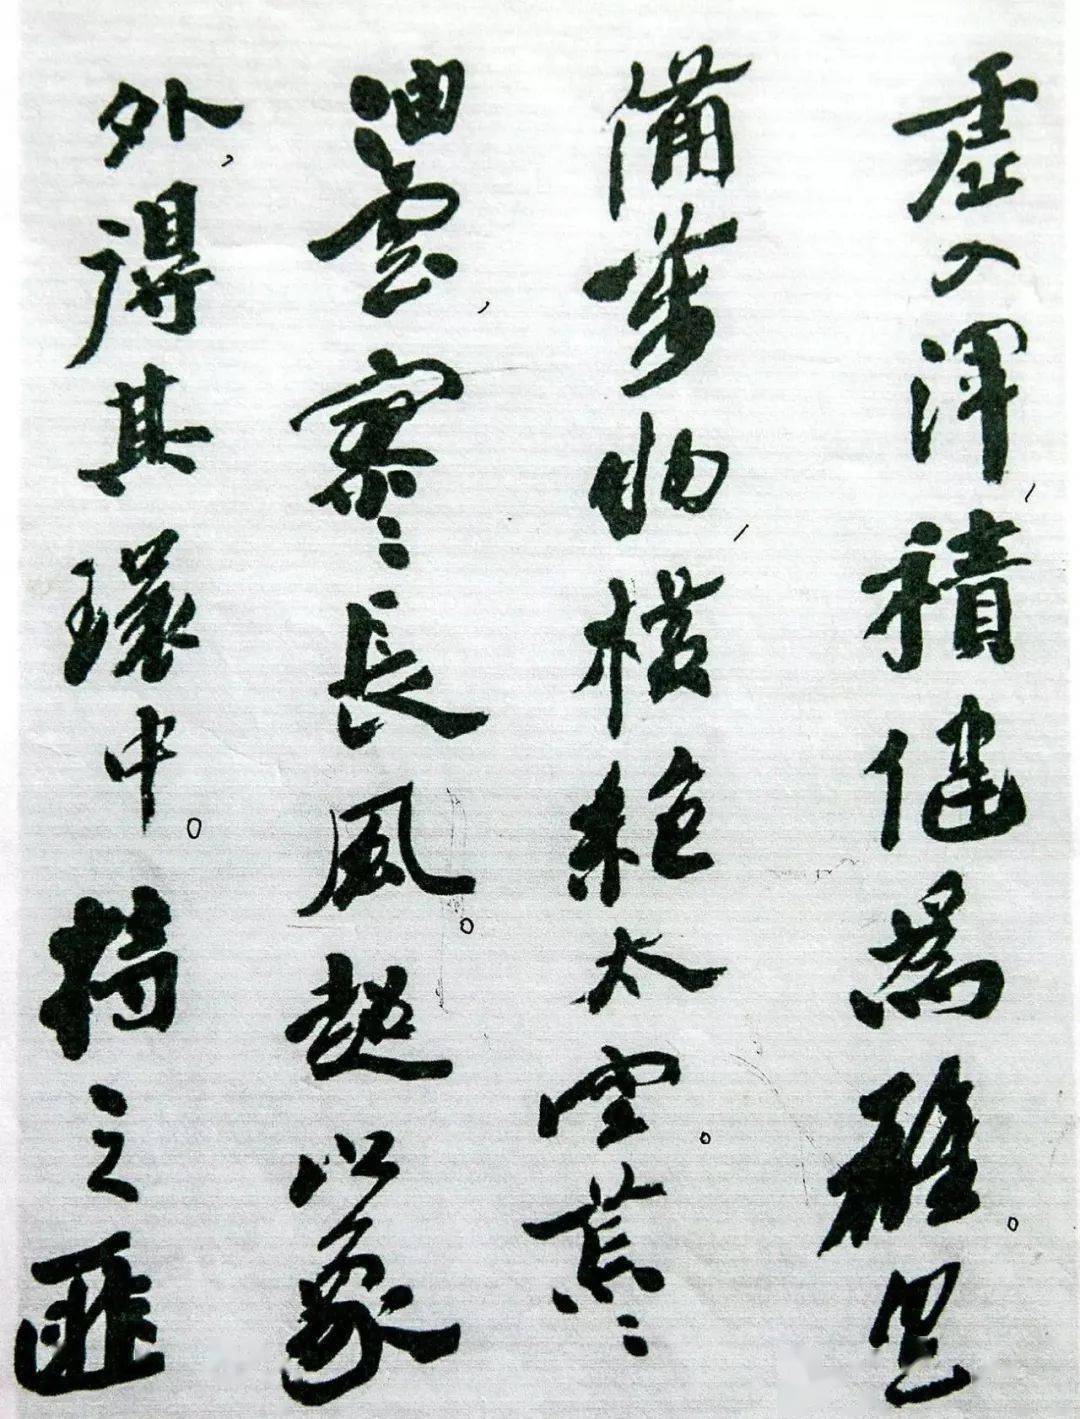 虛入渾,積健為雄。具
備萬物,橫絕太空。荒〻
油雲,寥〻長風。超以象
外,得其環中。持之匪